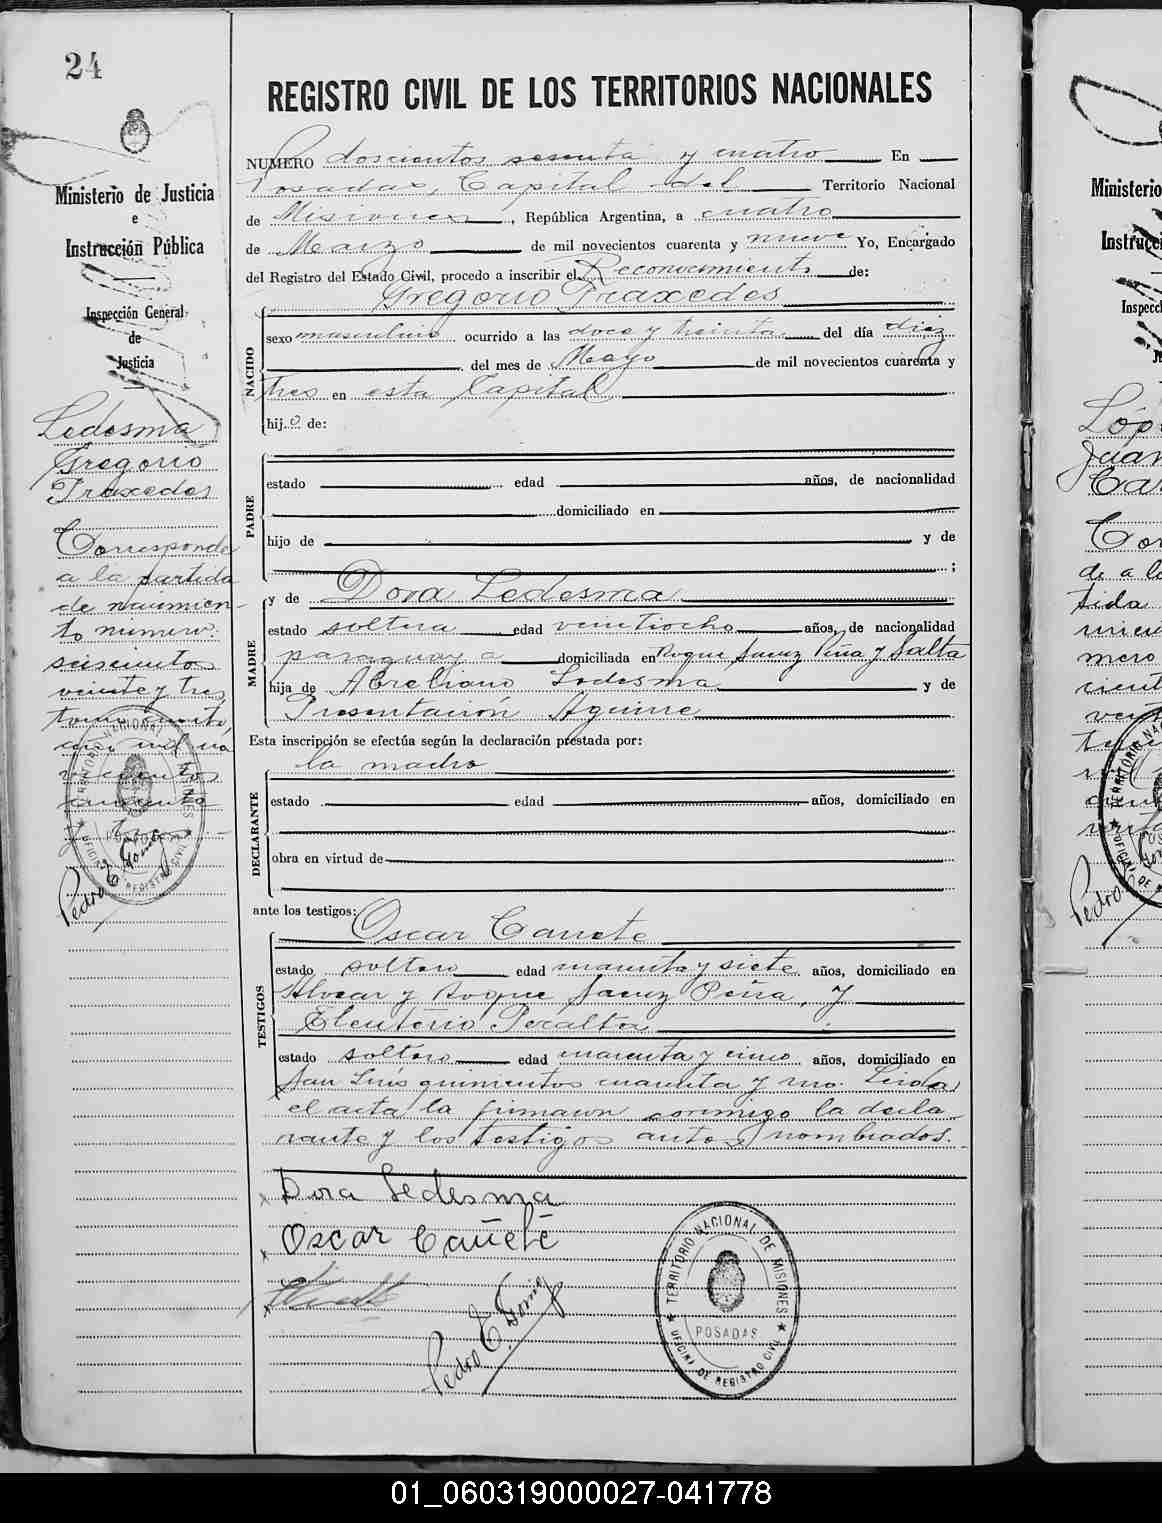 24
Ministerio de Justicia
e
Instrucción Pública
Inspección General
de
Justicia
Ledesma
Gregorio
Praxedes
Corresponde
a la partida
de nacimien-
to número
seiscientos
veinte y tres
tomo
mil no
vecientos
cuarenta
y tres
Pedro E. Gomez
REGISTRO CIVIL DE LOS TERRITORIOS NACIONALES
NUMERO doscientos sesenta y cuatro En
Posadas, Capital del Territorio Nacional
de Misiones, República Argentina, a cuatro
de Marzo de mil novecientos cuarenta y nueve Yo, Encargado
del Registro del Estado Civil, procedo a inscribir el Reconocimiento de:
Gregorio Praxedes
NACIDO
sexo masculino ocurrido a las doce y treinta del día diez
del mes de Mayo de mil novecientos cuarenta y
tres en esta Capital
hijo de:
PADRE
estado edad años, de nacionalidad
domiciliado en
hijo de y de
;
MADRE
y de Dora Ledesma
estado soltera edad veintiocho años, de nacionalidad
paraguaya domiciliada en Roque Saenz Peña y Salta
hija de Ledesma y de
Presentación Aguirre
Esta inscripción se efectúa según la declaración prestada por:
la madre
DECLARANTE
estado edad años, domiciliado en
obra en virtud de
ante los testigos:
Oscar Cañete
TESTIGOS
estado soltero edad cuarenta y siete años, domiciliado en
Alvear y Roque Saenz Peña, y
Eleuterio Peralta
estado soltero edad cuarenta y cinco años, domiciliado en
San Luis quinientos cuarenta y uno. Leida
el acta la firmaron conmigo la decla
rante y los testigos antes nombrados.
Dora Ledesma
Oscar Cañete
Pedro E. Gomez
TERRITORIO NACIONAL DE MISIONES
POSADAS
OFICINA DE REGISTRO CIVIL
01_060319000027-041778